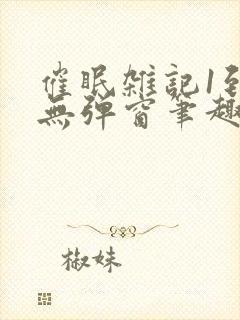 催眠雑記1至
無弹窗筆趣
椒妹